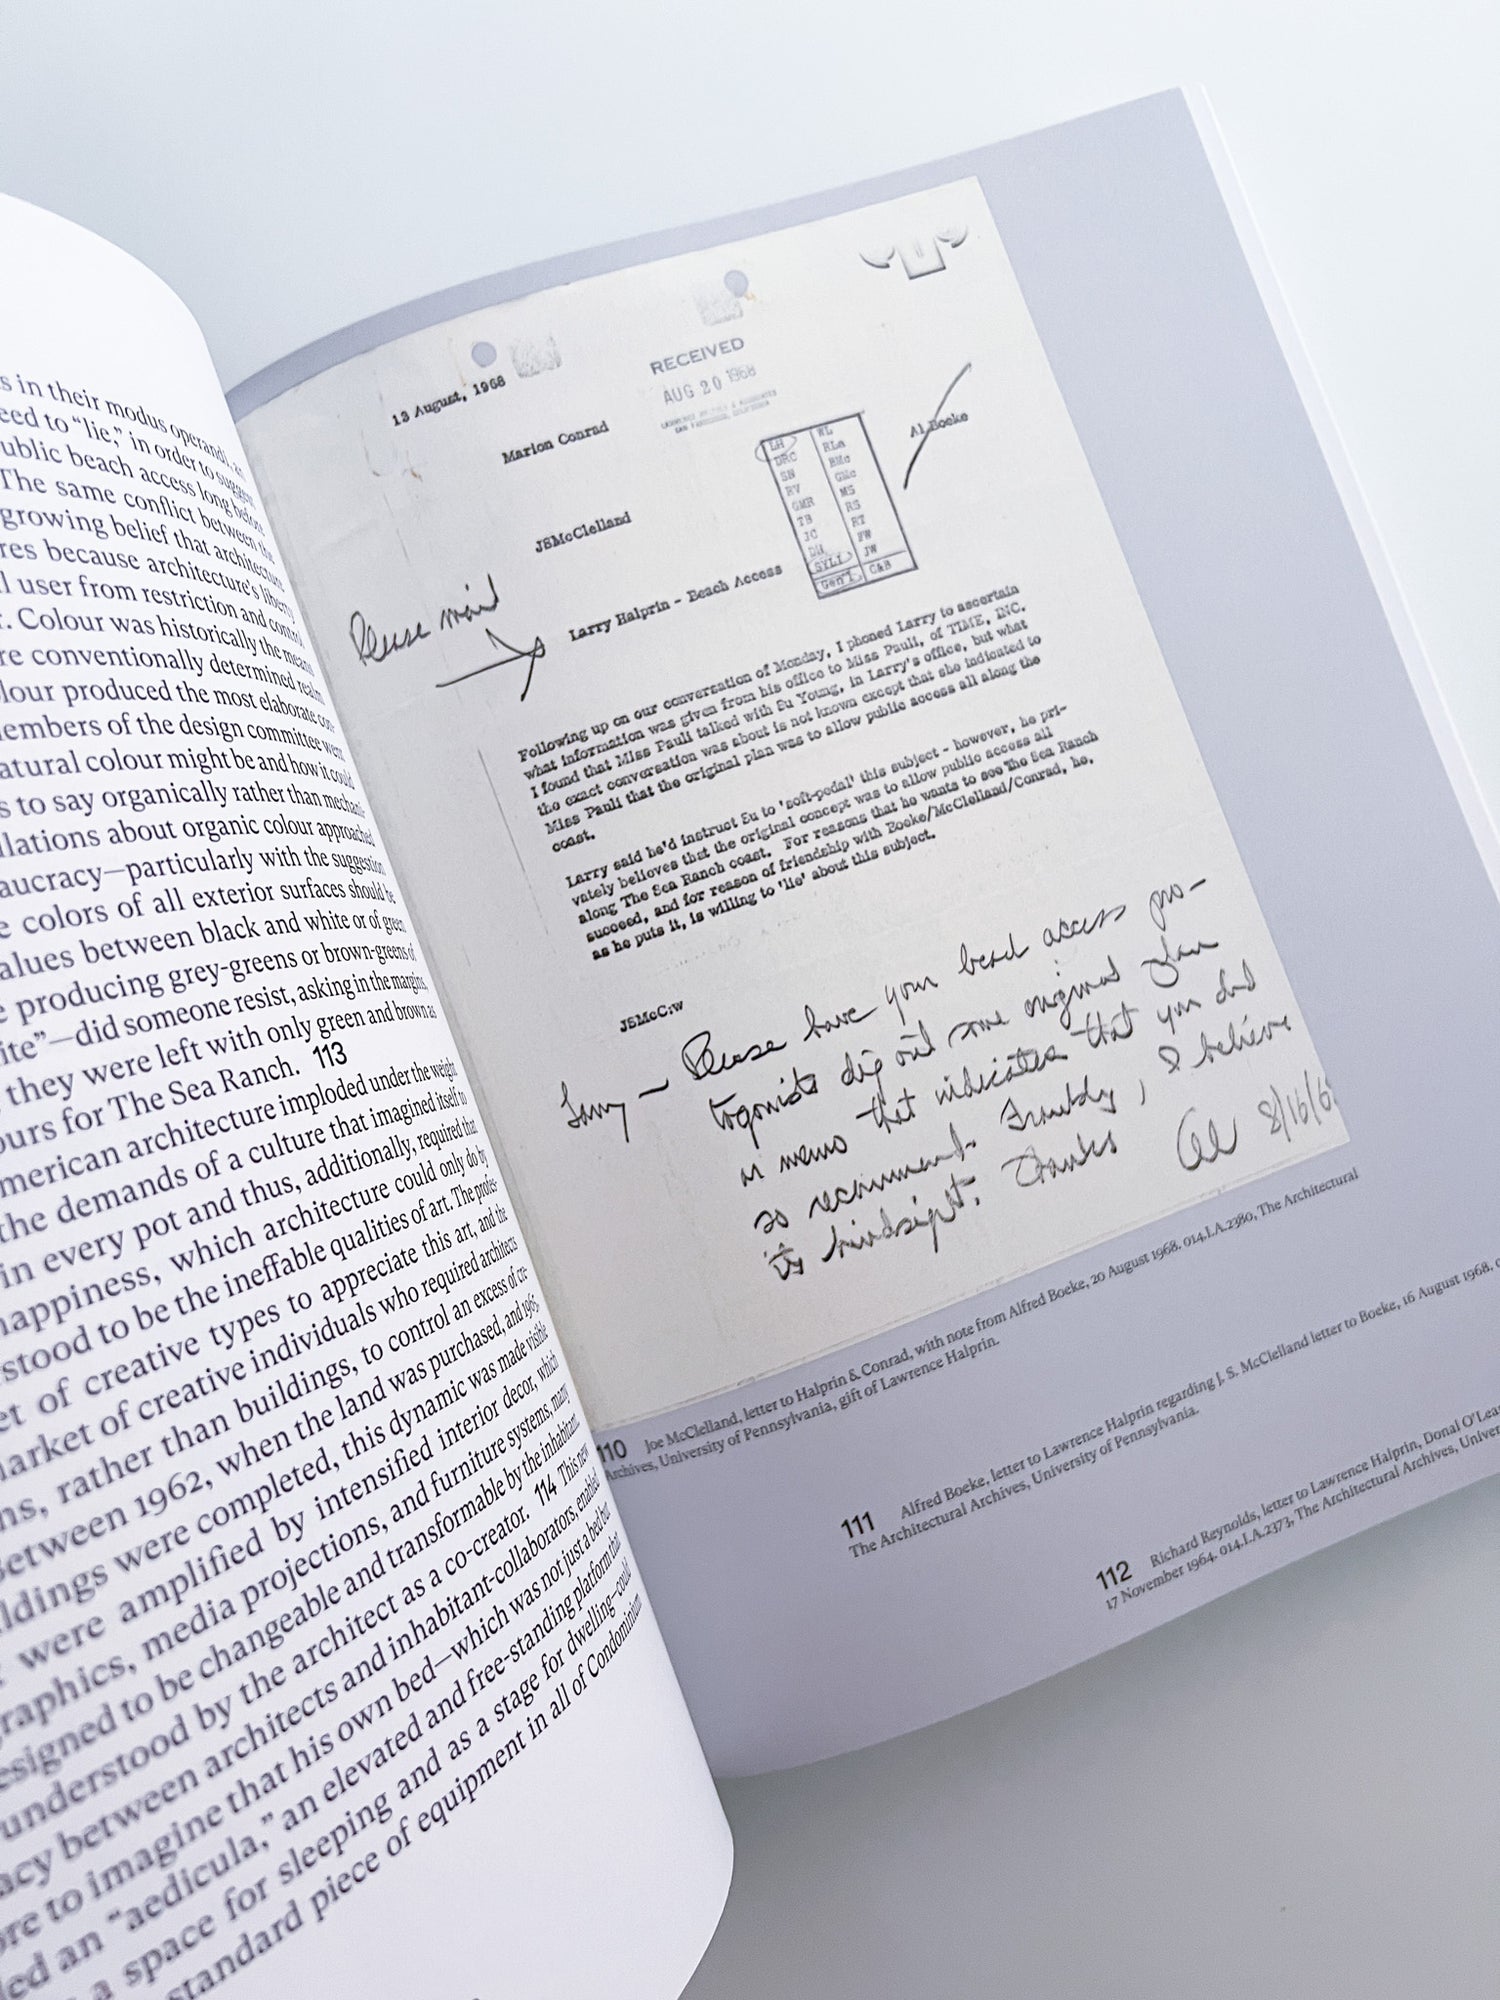 s in their modus operandi, as
eed to “lie,” in order to suggest
ublic beach access long before
The same conflict between the
growing belief that architecture
res because architecture's liberty
l user from restriction and control
r. Colour was historically the means
re conventionally determined realm
lour produced the most elaborate con-
embers of the design committee went
atural colour might be and how it could
s to say organically rather than mechani-
llations about organic colour approached
aucracy—particularly with the suggestion
e colors of all exterior surfaces should be
alues between black and white or of green
e producing grey-greens or brown-greens of
ite”—did someone resist, asking in the margins,
, they were left with only green and brown as
ours for The Sea Ranch. 113
merican architecture imploded under the weight
the demands of a culture that imagined itself to
in every pot and thus, additionally, required that
happiness, which architecture could only do by
rstood to be the ineffable qualities of art. The profes-
et of creative types to appreciate this art, and the
narket of creative individuals who required architects
ns, rather than buildings, to control an excess of cre-
Between 1962, when the land was purchased, and 1965,
ldings were completed, this dynamic was made visible
were amplified by intensified interior decor, which
raphics, media projections, and furniture systems, many
esigned to be changeable and transformable by the inhabitant,
understood by the architect as a co-creator. 114 This new
acy between architects and inhabitant-collaborators, enabled
ore to imagine that his own bed—which was not just a bed but
led an “aedicula,” an elevated and free-standing platform that
s a space for sleeping and as a stage for dwelling—could
standard piece of equipment in all of Condominium
13 August, 1968
RECEIVED
AUG 20 1968
SAN FRANCISCO, CALIFORNIA
Marion Conrad
Al Boeke
JSMcClelland
LH WL
DRC RLa
SN BMc
RV GMc
GMR MS
TB RS
JC RT
DH FW
SYLV JW
Gen'l C&B
Please mail
Larry Halprin - Beach Access
Following up on our conversation of Monday, I phoned Larry to ascertain
what information was given from his office to Miss Pauli, of TIME, INC.
I found that Miss Pauli talked with Su Young, in Larry's office, but what
the exact conversation was about is not known except that she indicated to
Miss Pauli that the original plan was to allow public access all along the
coast.
Larry said he'd instruct Su to 'soft-pedal' this subject - however, he pri-
vately believes that the original concept was to allow public access all
along The Sea Ranch coast. For reasons that he wants to see The Sea Ranch
succeed, and for reason of friendship with Boeke/McClelland/Conrad, he,
as he puts it, is willing to 'lie' about this subject.
JSMcC:w
Larry — Please have your beach access pro-
togonists dig out some original plan
or memo that indicates that you did
so recommend. Frankly, I believe
its hindsight. Thanks Al 8/16/68
110 Joe McClelland, letter to Halprin & Conrad, with note from Alfred Boeke, 20 August 1968. 014.I.A.2380, The Architectural
Archives, University of Pennsylvania, gift of Lawrence Halprin.
111 Alfred Boeke, letter to Lawrence Halprin regarding J. S. McClelland letter to Boeke, 16 August 1968.
The Architectural Archives, University of Pennsylvania.
112 Richard Reynolds, letter to Lawrence Halprin, Donal O'Lear
17 November 1964. 014.I.A.2373, The Architectural Archives, Univer